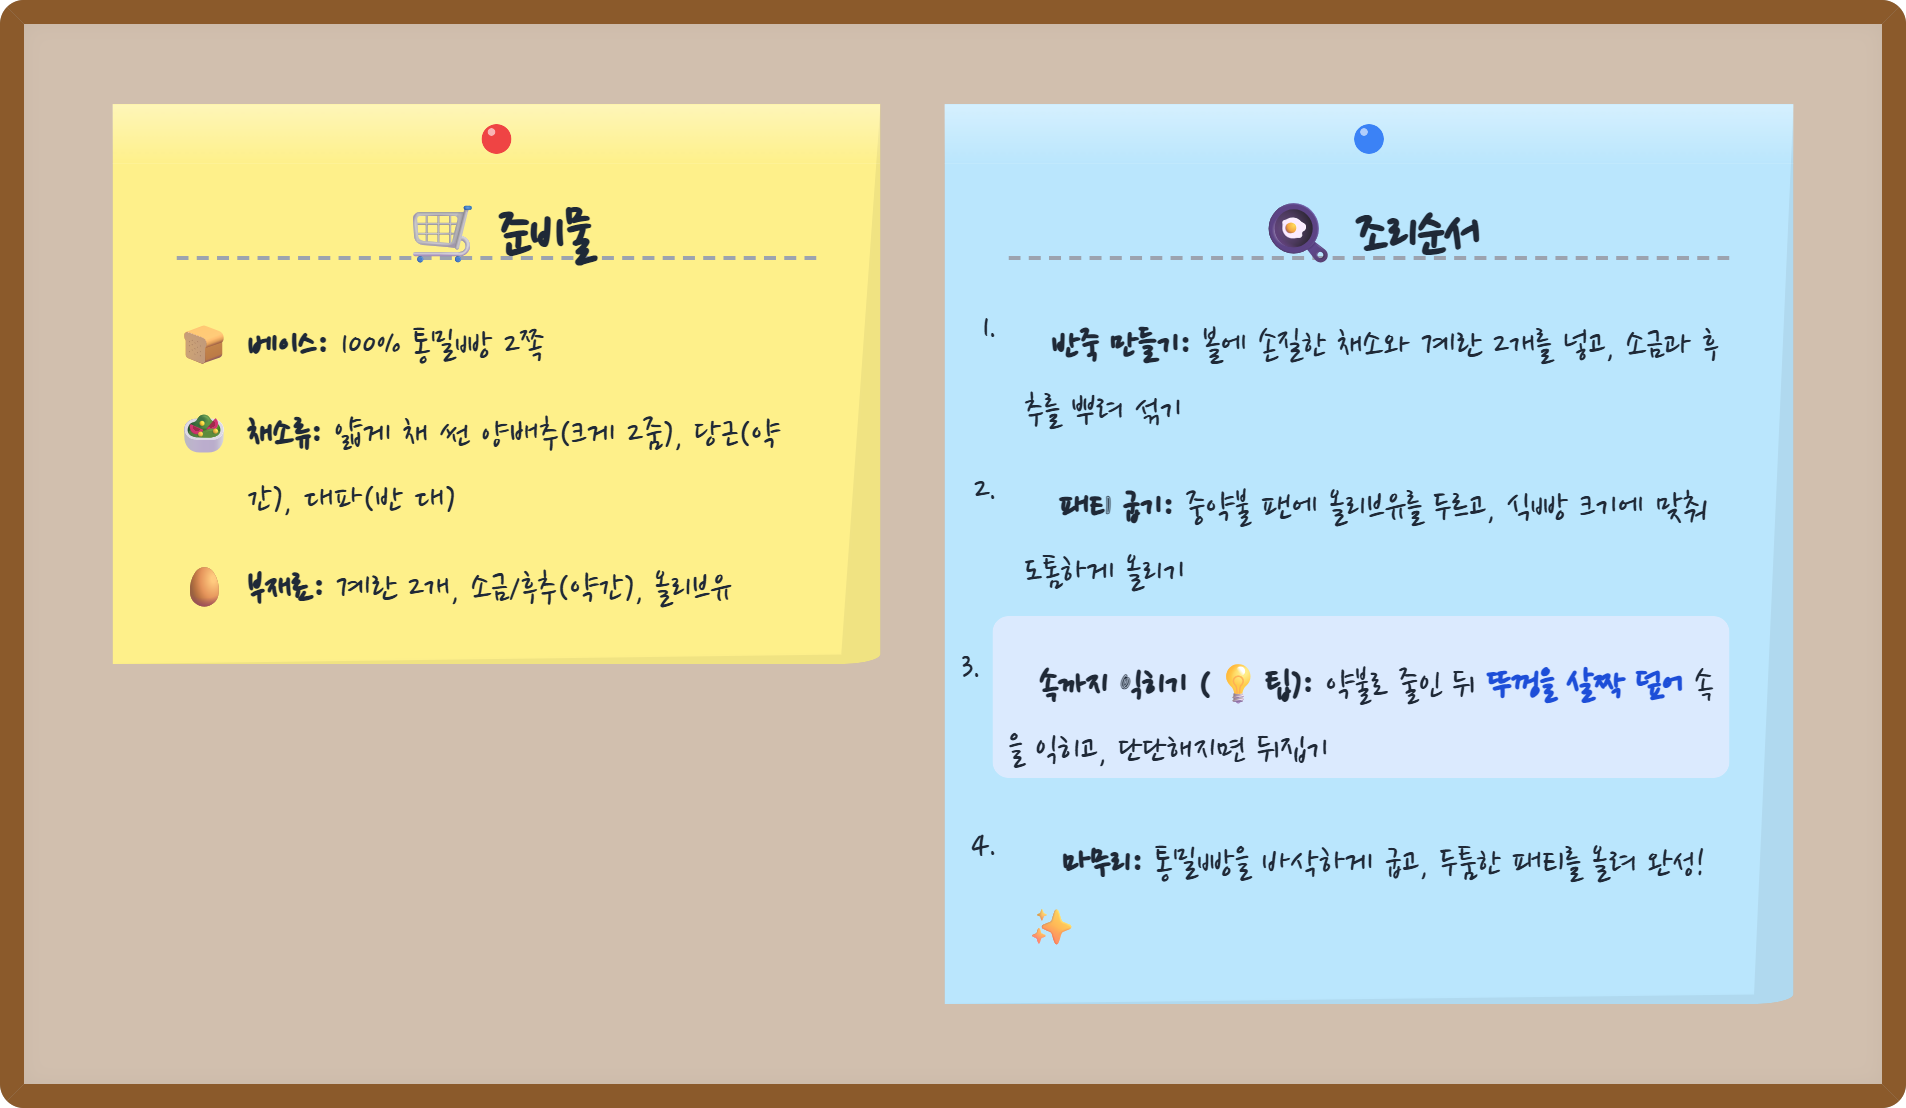 준비물
베이스: 100% 통밀빵 2쪽
채소류: 얇게 채 썬 양배추(크게 2줌), 당근(약
간), 대파(반 대)
부재료: 계란 2개, 소금/후추(약간), 올리브유
조리순서
1. 반죽 만들기: 볼에 손질한 채소와 계란 2개를 넣고, 소금과 후
추를 뿌려 섞기
2. 패티 굽기: 중약불 팬에 올리브유를 두르고, 식빵 크기에 맞춰
도톰하게 올리기
3. 속까지 익히기 (💡 팁): 약불로 줄인 뒤 뚜껑을 살짝 덮어 속
을 익히고, 단단해지면 뒤집기
4. 마무리: 통밀빵을 바삭하게 굽고, 두툼한 패티를 올려 완성!